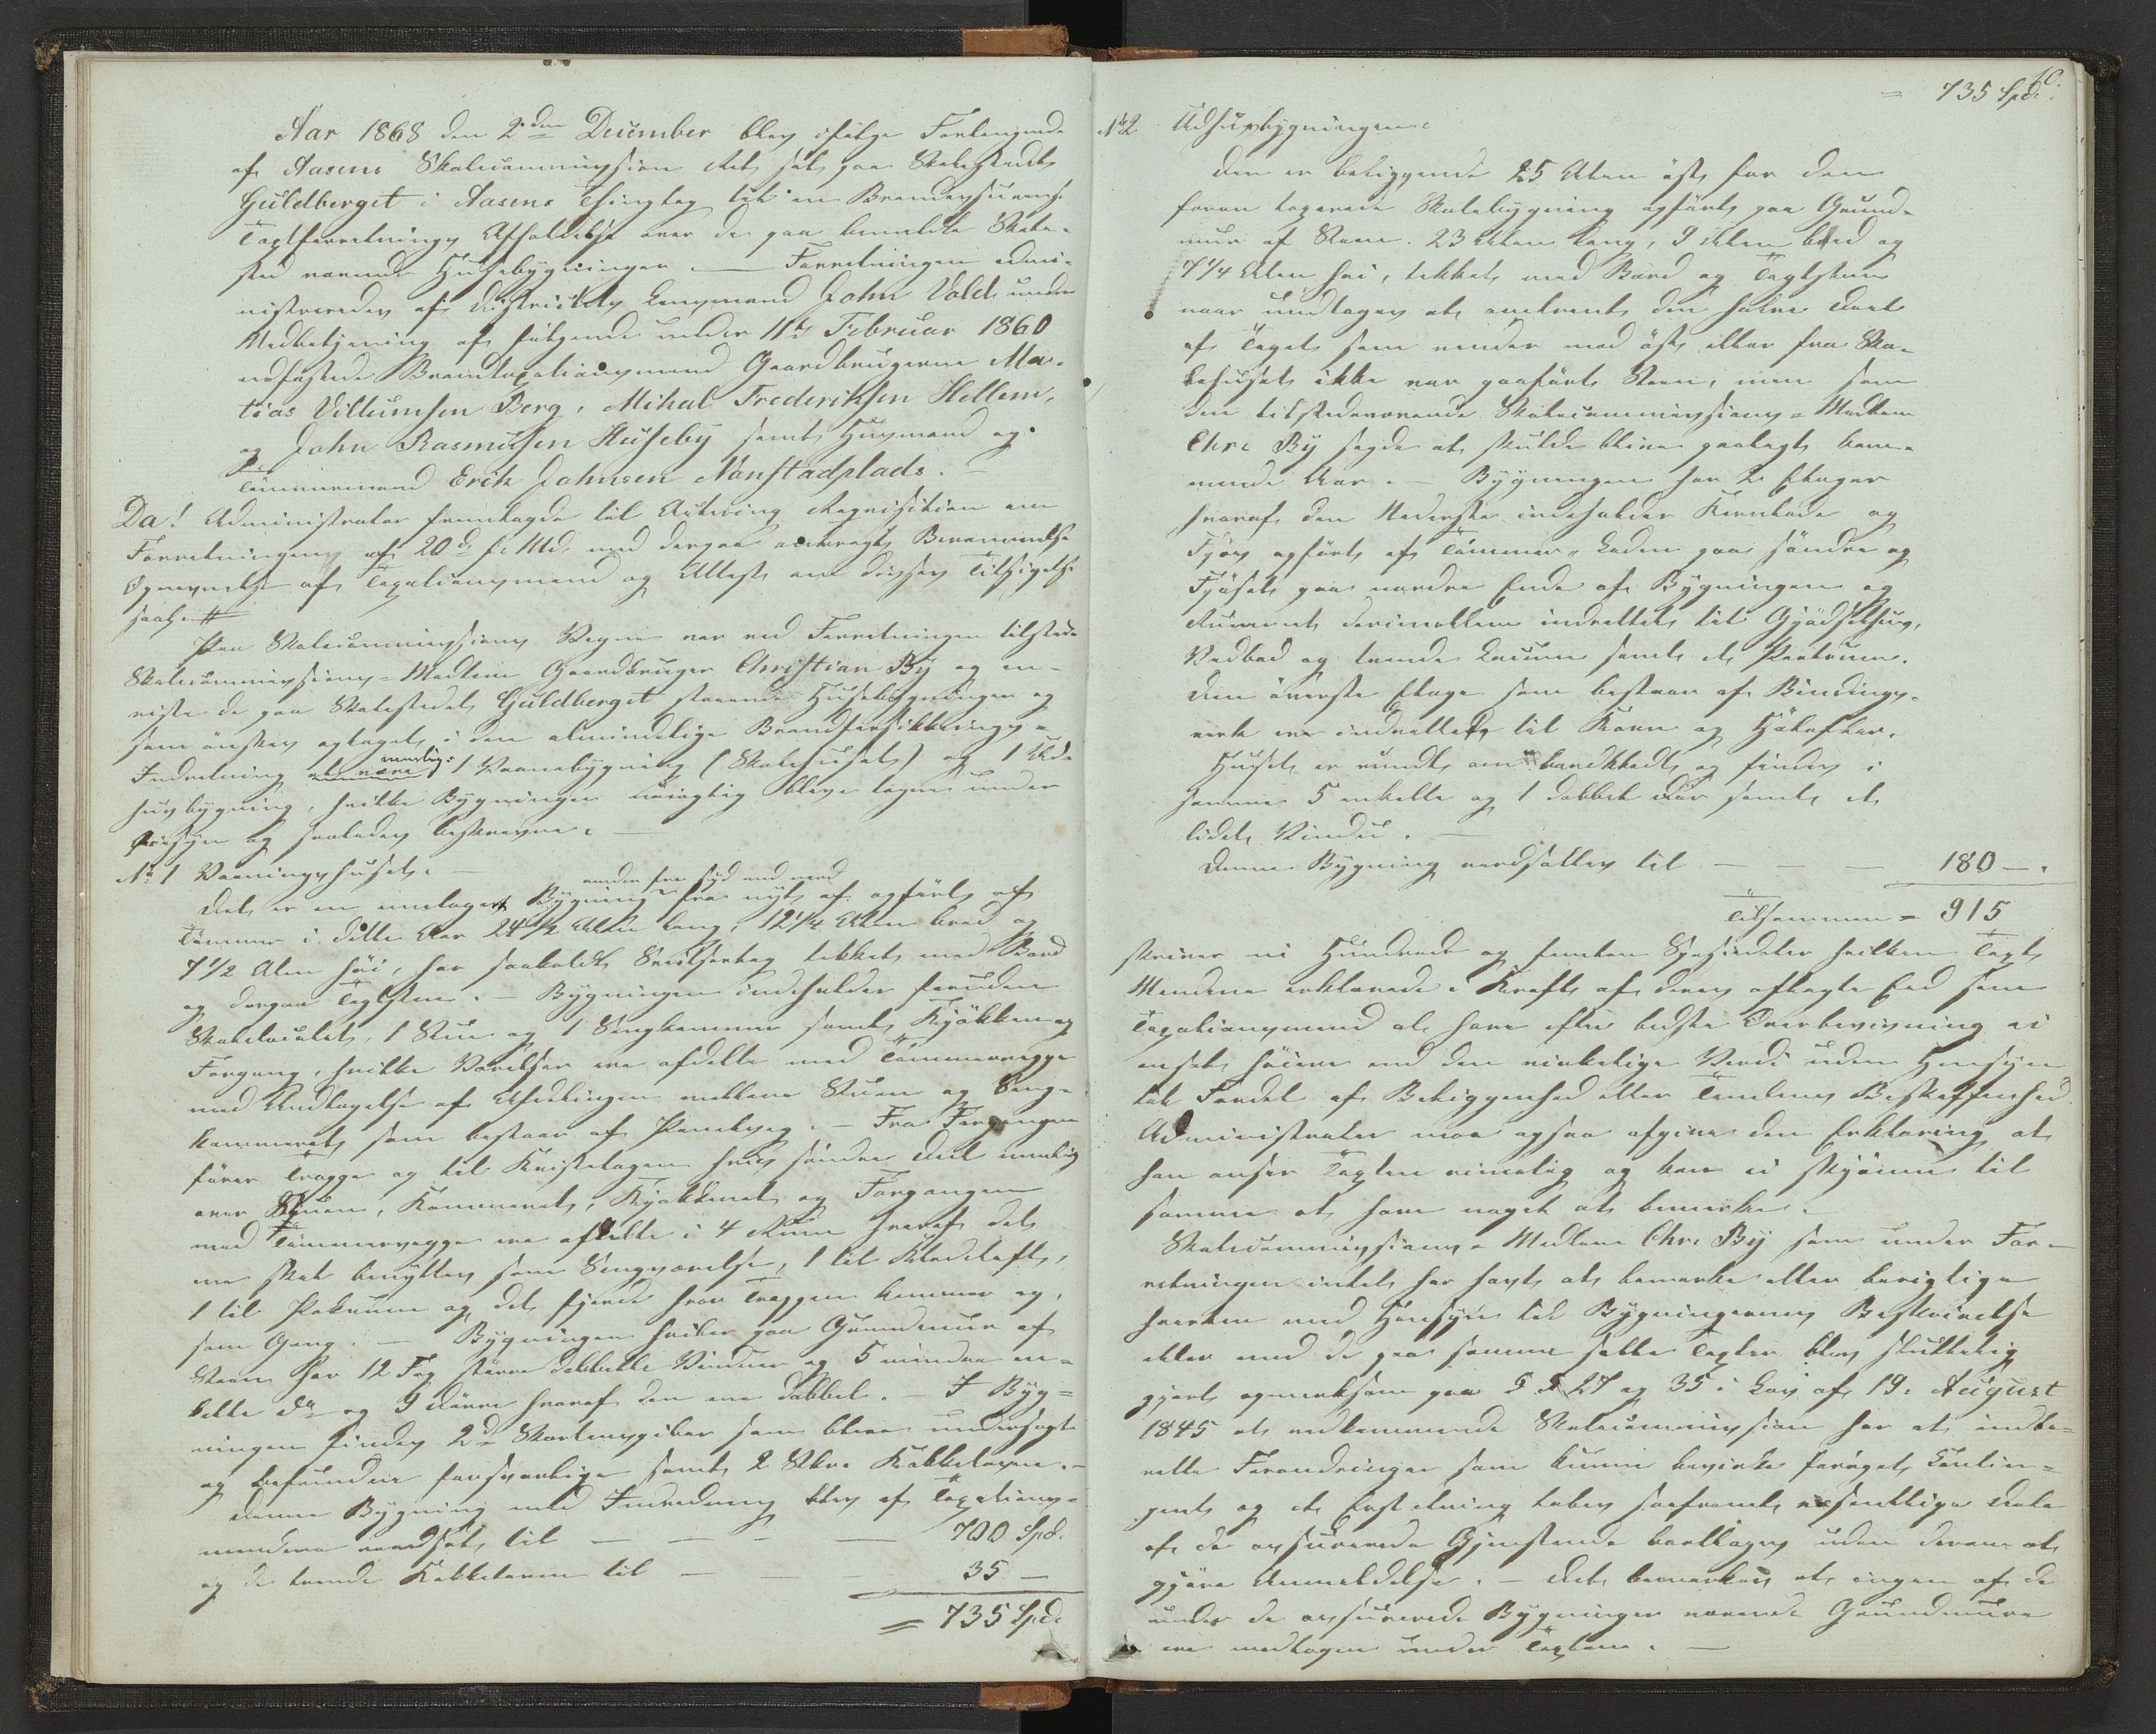 Aar 1868 den 2den December blev ifølge Forlangende
af Aasens Skolecommission Ret sat paa Skolestedet
Guldberget i Aasens Thinglag til en Brandassurance
Taxtforretnings Afholdelse over de paa bemeldte Skole-
sted værende Huusebygninger. — Forretningen admi-
nistreredes af Districtets Lensmand John Vold under
Medbetjening af følgende under 11te Februar 1860
udfæstede Brandtaxationsmænd Gaardbrugerne Ma-
tias Villumsen Berg, Mikal Frederiksen Hellem,
og John Rasmussen Huseby samt Huusmand og
Tømmermand Erik Johnsen Nonstadplads. —
Da! Administrator fremlagde til Actering Requisition om
Forretningen af 20de f. Md. med derpaa Berammelse
Opnævnelse af Taxationsmænd og Attest om disses Tilsigelse
saal. #
Paa Skolecommissions Vegne var ved Forretningen tilstede
Skolecommissions-Medlem Gaardbruger Christian By og en-
viste de paa Skolestedet Guldberget staaende Huusebygninger og
som ønskes optaget i den almindelige Brandforsikkrings-
Indretning at være nemlig: 1 Vaanebygning (Skolehuset) og 1 Ud-
huusbygning, hvilke Bygninger nøiagtig bleve tagne under
Øiesyn og saaledes beskrevne. —
No 1 Vaaningshuset. —
Det er en Bygning vender fra Syd mod nord fra nyt af opført af
Tømmer i dette Aar 24 1/2 Alen lang, 12 1/4 Alen bred og
7 1/2 Alen høi, har saakaldt tag tekket med Bord
og derpaa Taglsteen. — Bygningen indeholder foruden
Skolelocalet, 1 Stue og 1 Sengkammer samt Kjøkken og
Forgang, hvilke Værelser ere afdelte med Tømmervægge
med Undtagelse af Afdelingen mellem Stuen og Senge-
kammeret som bestaar af Panelvæg. — Fra Forgangen
fører Trappe og til Kvistetagen hvis søndre Deel nemlig
over Stuen, Kammeret, Kjøkkenet og Forgangen
med Tømmervægge ere afdelte i 4 Rum hvoraf det
ene skal benyttes som Sengværelse, 1 til Klædeloft,
1 til Pakrum og det fjerde hvor Trappen kommer op,
som Gang. — Bygningen hviler paa Grundmuur af
Steen har 12 Fag større dobbelte Vinduer og 5 mindre en-
kelte do og 9 Dørre hvoraf den ene dobbel. — I Byg-
ningen findes 2de Skorsteenspiber som bleve undersøgt
og befundne forsvarlige samt 2 Stkr. Kakkelovne. —
Denne Bygning med Indredning blev af Taxations-
mændene værdsat til — — — — 700 Spd.
og de tvende Kakkelovne til — — — 35 —
= 735 Spd.
10.
= 735 Spd.
No 2 Udhuusbygningen.
Den er beliggende 25 Alen øst for den
foran taxerede Skolebygning opført paa Grund-
muur af Steen. 23 Alen lang, 9 Alen bred og
7 1/4 Alen høi, tekket med Bord og Taglsteen
naar undtages at omtrent den halve Deel
af Taget som vender mod øst eller fra Sko-
lehuset ikke var paaført Steen, men som
den tilstedeværende Skolecommissions-Medlem
Chr. By sagde at skulde blive paalagt kom-
mende Aar. — Bygningen har 2 Etager
hvoraf den Nederste indeholder Kornlade og
Fjøs opført af Tømmer, Laden paa søndre og
Fjøset paa nordre Ende af Bygningen og
Rummet derimellem indrettet til Gjødselhuus,
Vedbod og tvende Locum samt et Pakrum.
Den øverste Etage som bestaar af Bindings-
verk ere indrettet til Korn og Høloster.
Huset er rundt om bordklædt og findes i
samme 5 enkelte og 1 dobbelt Dør samt et
lidet Vindue. —
Denne Bygning værdsattes til — — 180 — .
Tilsammen = 915
skriver ni Hundrede og femten Speciedaler hvilken Taxt
Mændene erklærede i Kraft af deres aflagte Eed som
Taxationsmænd at have efter bedste Overbeviisning ei
ansat høiere end den virkelige Værdi uden Hensyn
til Fordel af Beliggenhed eller Tomtens Beskaffenhed.
Administrator maa ogsaa afgive den Erklæring at
han anser Taxten rimelig og kan ei skjønne til
samme at have noget at bemærke.
Skolecommissions-Medlem Chr. By som under For-
retningen intet har havt at bemærke eller berigtige
hverken med Hensyn til Bygningernes Beskrivelse
eller med de paa samme satte Taxter blev sluttelig
gjort opmærksom paa § § 27 og 35 i Lov af 19. August
1845 at vedkommende Skolecommission har at indbe-
rette Forandringer som kunne bevirke forøget Contin-
gent og at Erstatning tabes saafremt væsentlige Dele
af de assurerede Gjenstande borttages uden derom at
gjøre Anmeldelse. — Det bemærkes at ingen af de
under de assurerede Bygninger værende Grundmure
ere medtagen under Taxten. —